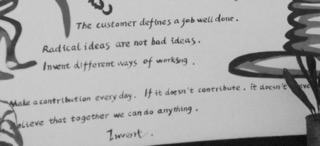 The customer defines a job well done.
Radical ideas are not bad ideas.
Invent different ways of working.
Make a contribution every day. If it doesn't contribute, it doesn't
Believe that together we can do anything.
Invent.